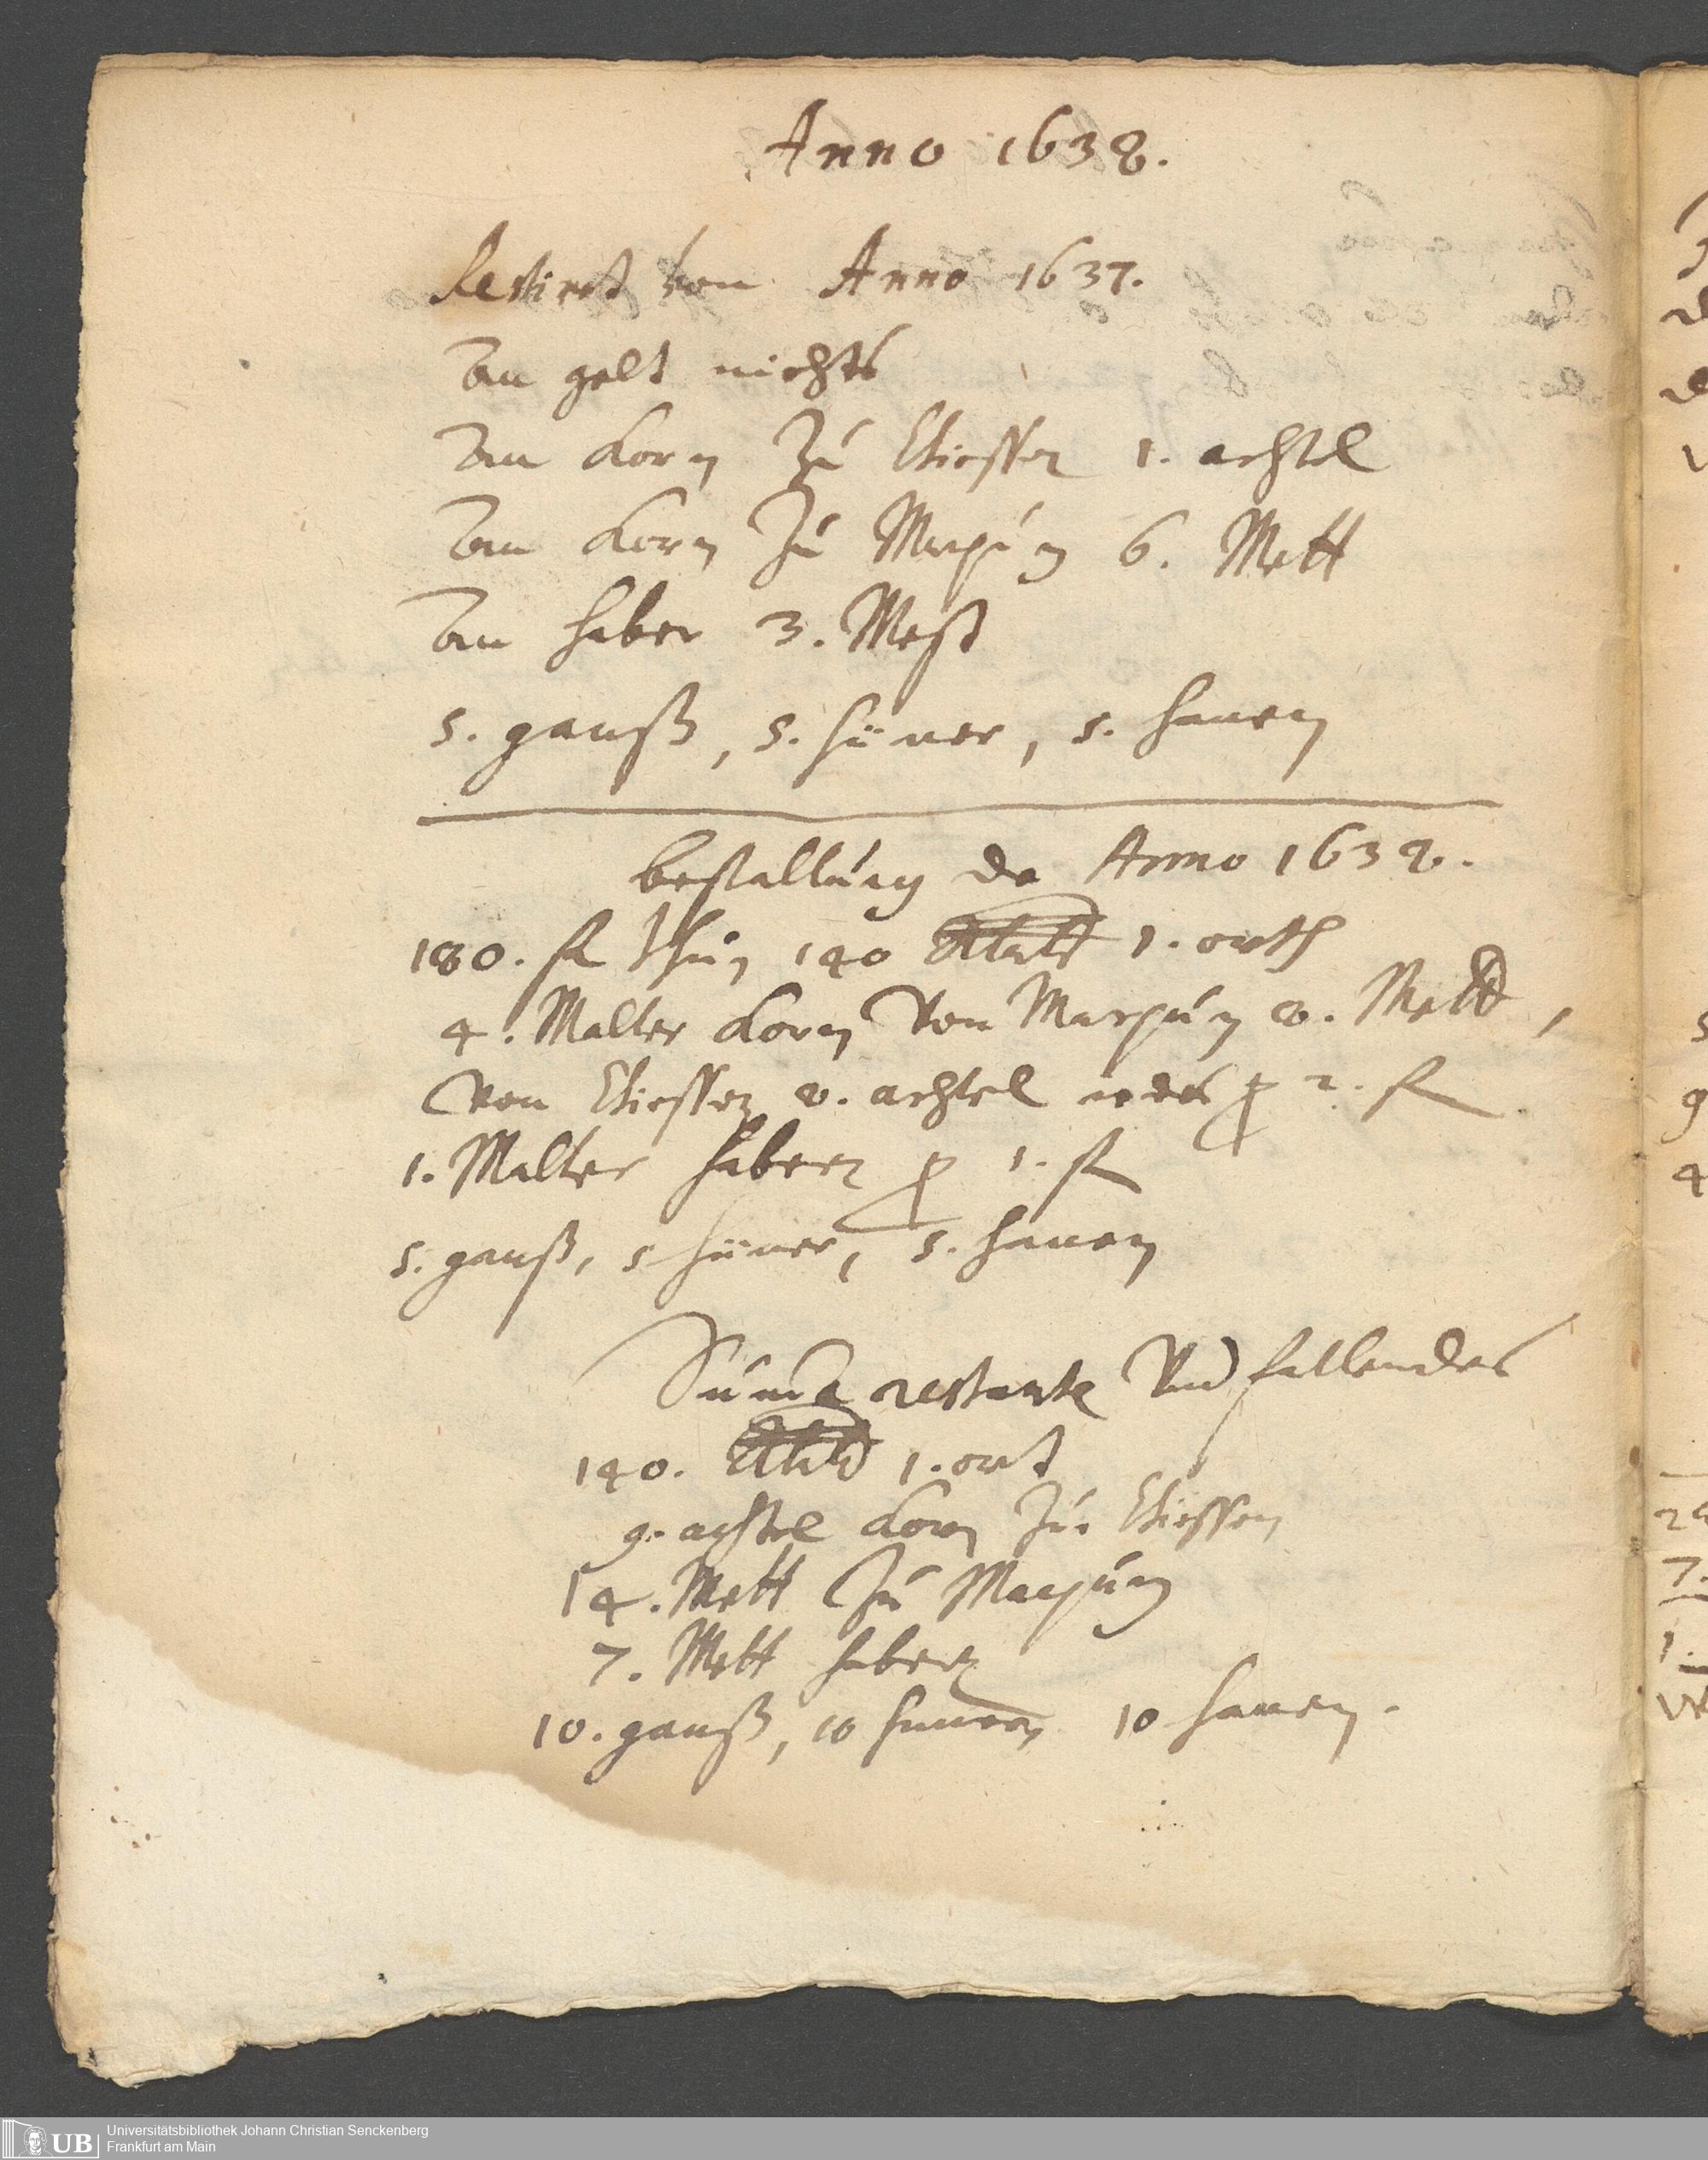 Anno 1638.
Restiret von Anno 1637.
An gelt nichts
An Korn zu Giessen 1. achtel
An Korn zu Marpurg 6. Mött
An haber 3. Mest
5. gäns, 5. hüner, 5. hanen
bestallung de Anno 1638.
180. fl thun 140 1. orth
4. Malter Korn Von Marpurg 8. Mött,
Von Giessen 8. achtel iedes p 2. fl
1. Malter habern p 1. fl
5. gäns, 5 hüner, 5. hanen
Summa restante Und fallendes
140. 1. ort
9. achtel Korn zu Giessen
14. Mött zu Marpurg
7. Mött habern
10. gäns, 10 hünern 10 hanen.
UB
Universitätsbibliothek Johann Christian Senckenberg
Frankfurt am Main